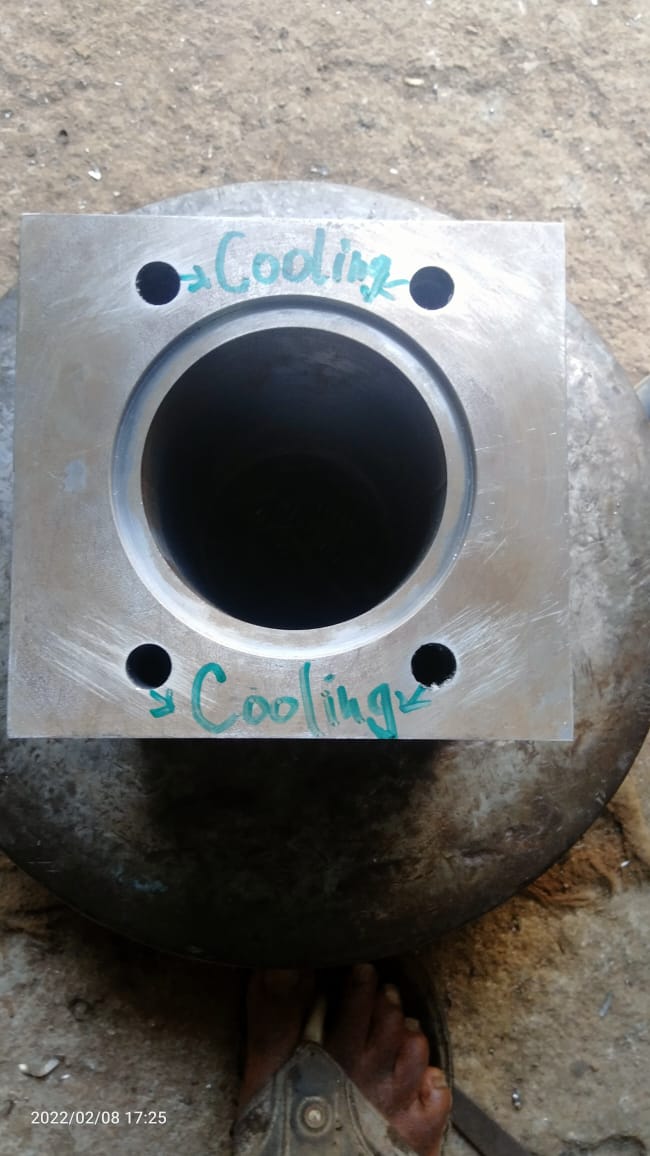 Cooling
Cooling
2022/02/08 17:25